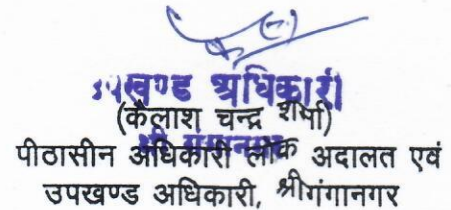 उपखण्ड अधिकारी
(कैलाश चन्द्र शर्मा)
श्री गंगानगर
पीठासीन अधिकारी लोक अदालत एवं
उपखण्ड अधिकारी, श्रीगंगानगर